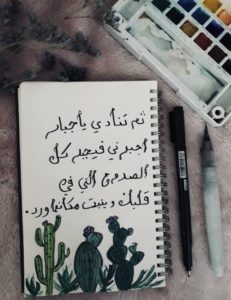 ثم تنادي يا جبار
اجبرني فيجبر كل
الصدوع التي في
قلبك وينبت مكانها ورد.